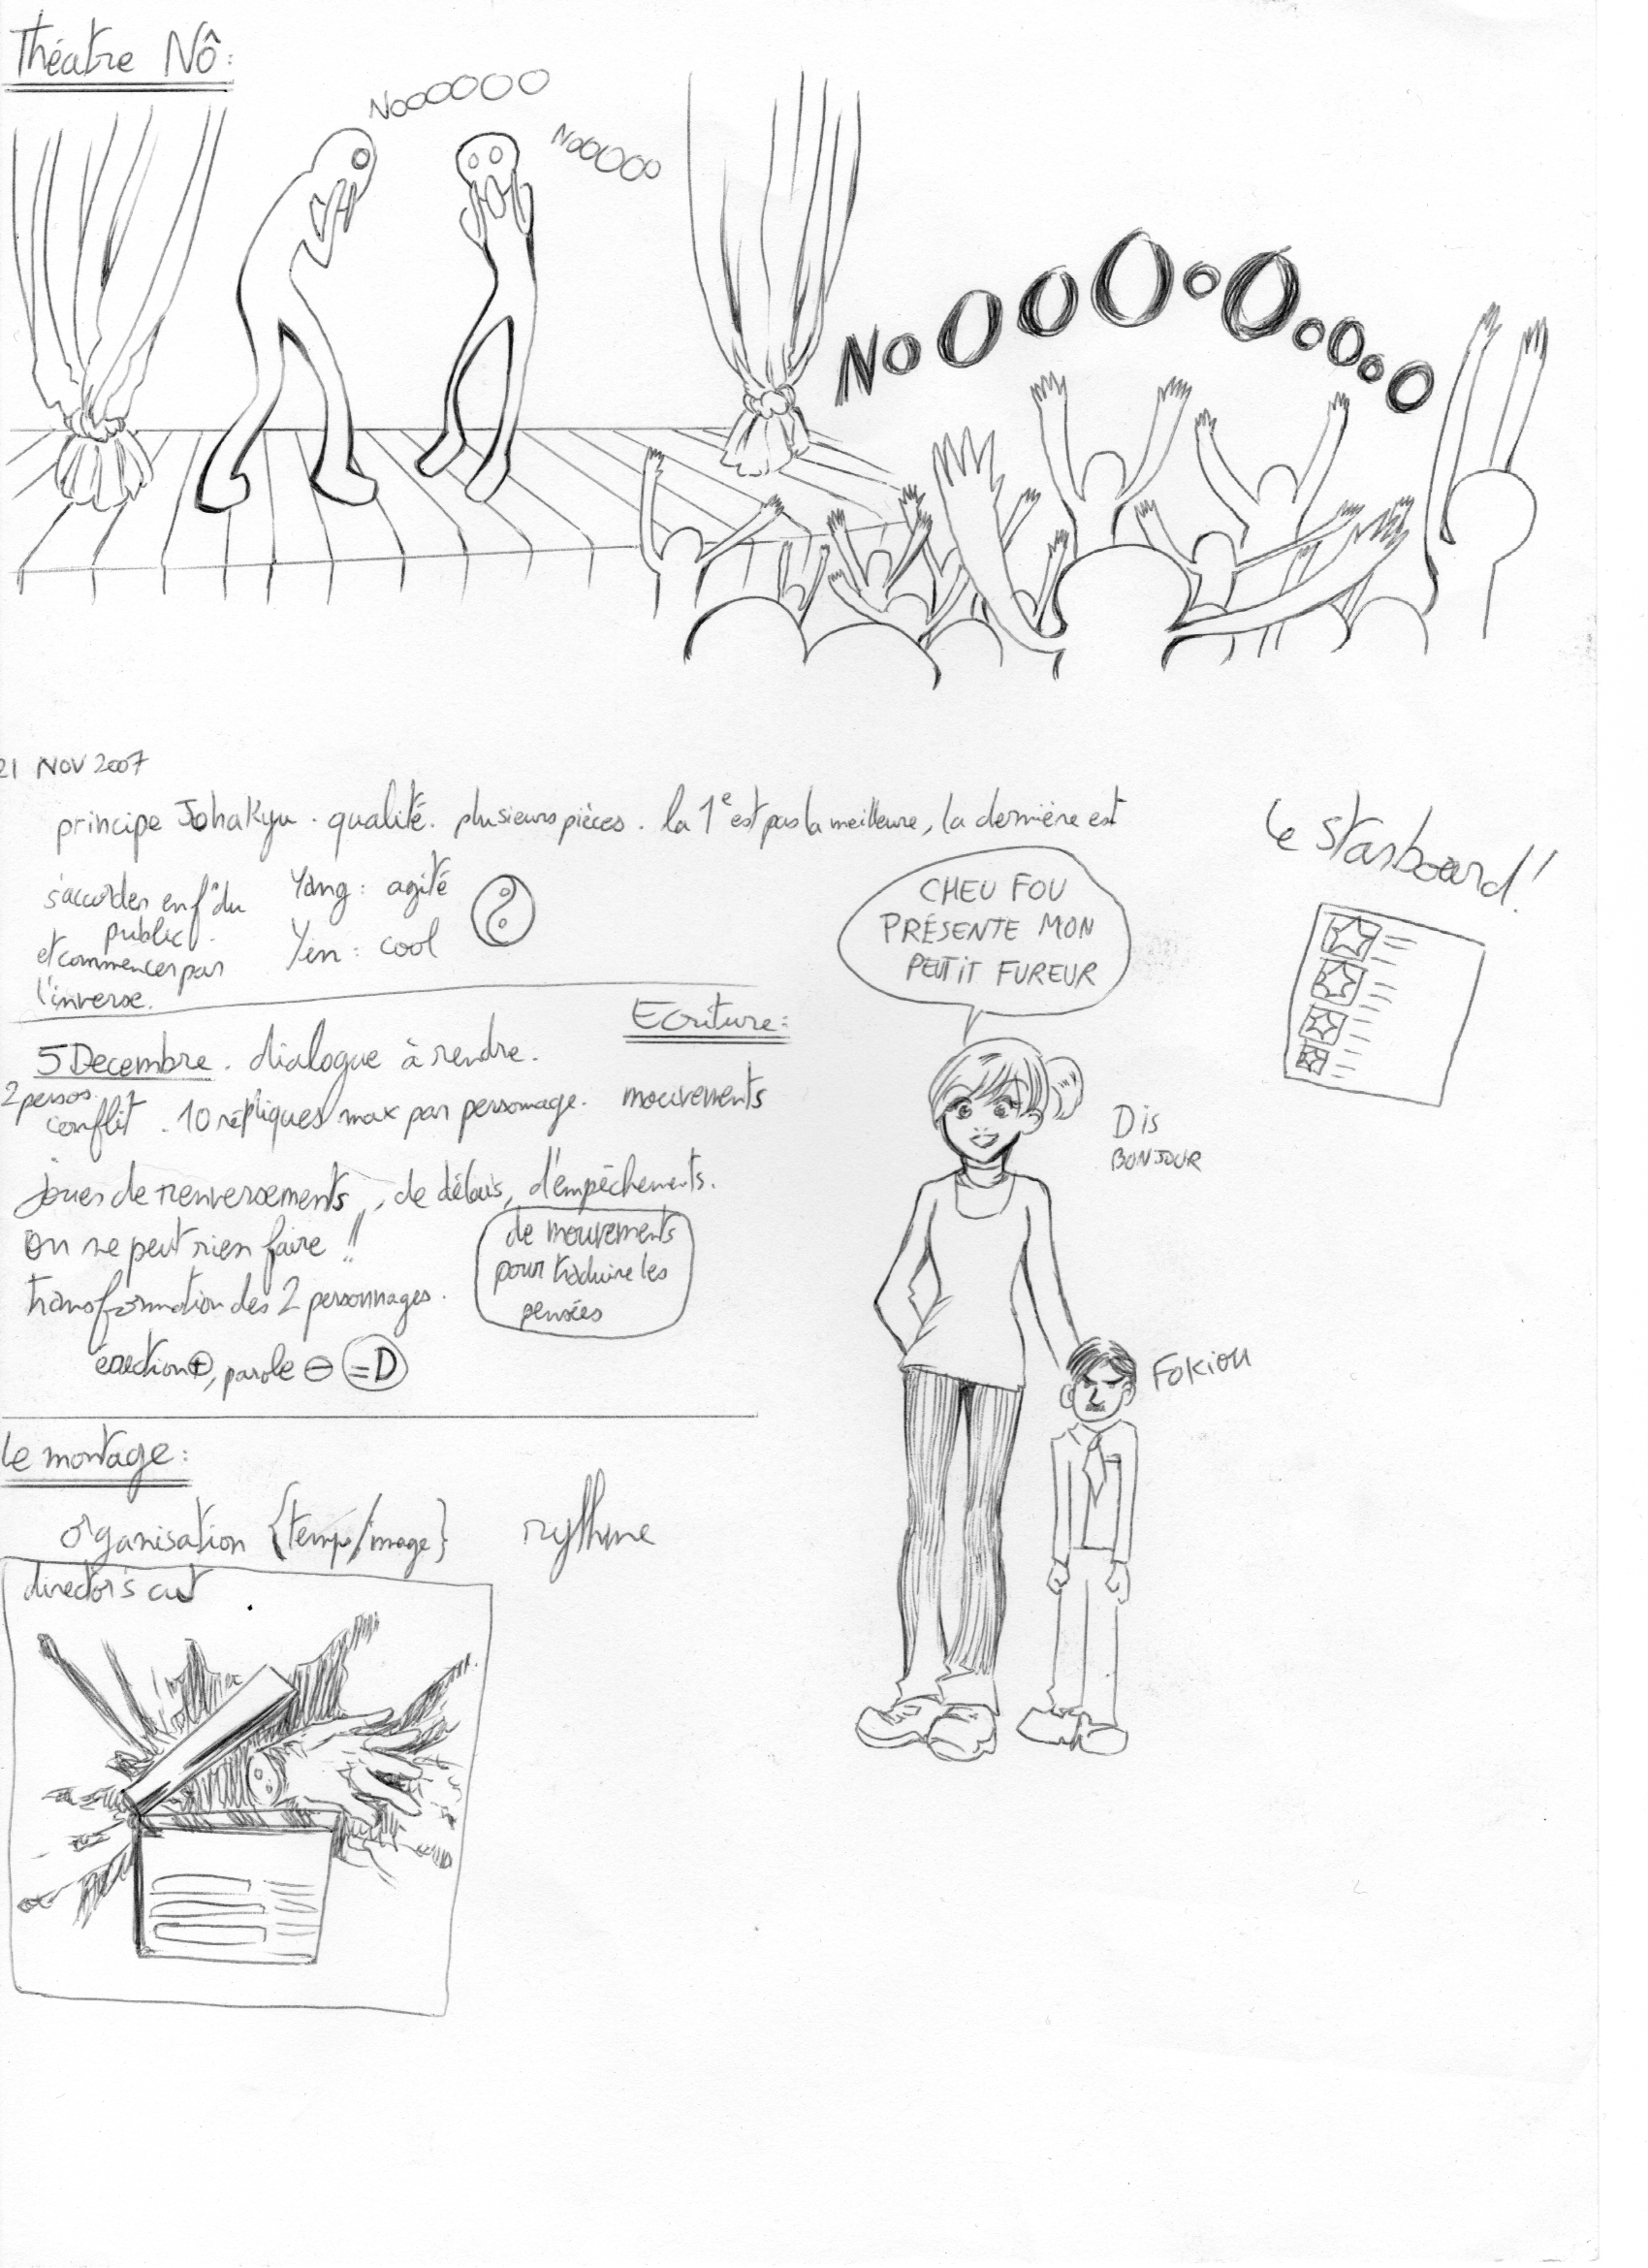 Théatre Nô:
NooOOOO
NoOOOoo
NoOOOoOoOoO
21 NOV 2007
principe JohaKyu . qualité. plusieurs pièces. la 1e est pas la meilleure, la dernière est
s'accorder en f° du
public.
et commencer par
l'inverse.
Yang: agité
Yin: cool
Le starboard!
CHEU FOU
PRÉSENTE MON
PEUTIT FUREUR
Ecriture:
5 Decembre. dialogue à rendre.
2 persos.
conflit. 10 répliques max par personnage. mouvements
jouer de renversements, de délais, d'empêchements.
on ne peut rien faire!!
transformation des 2 personnages.
de mouvements
pour traduire les
pensées
⊕, parole ⊖ =D
Dis
BONJOUR
Fokiou
Le montage:
organisation {temps/image} rythme
director's cut